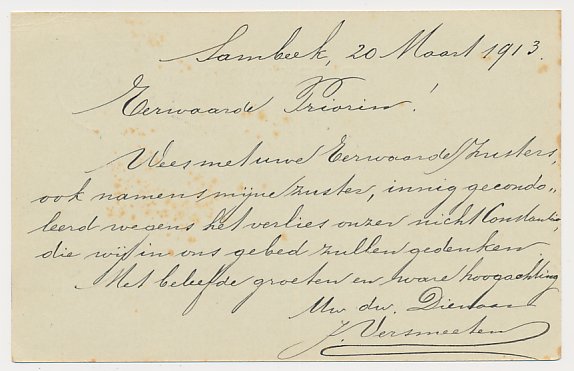 Sambeek, 20 Maart 1913.
Eerwaarde Priorin!
Wees met uwe Eerwaarde Zusters,
ook namens mijne zuster, innig gecondo„
leerd wegens het verlies onzer nicht Constantia,
die wij in ons gebed zullen gedenken
Met beleefde groeten en ware hoogachting
Uw dw. Dienaar
J. Versmeeten